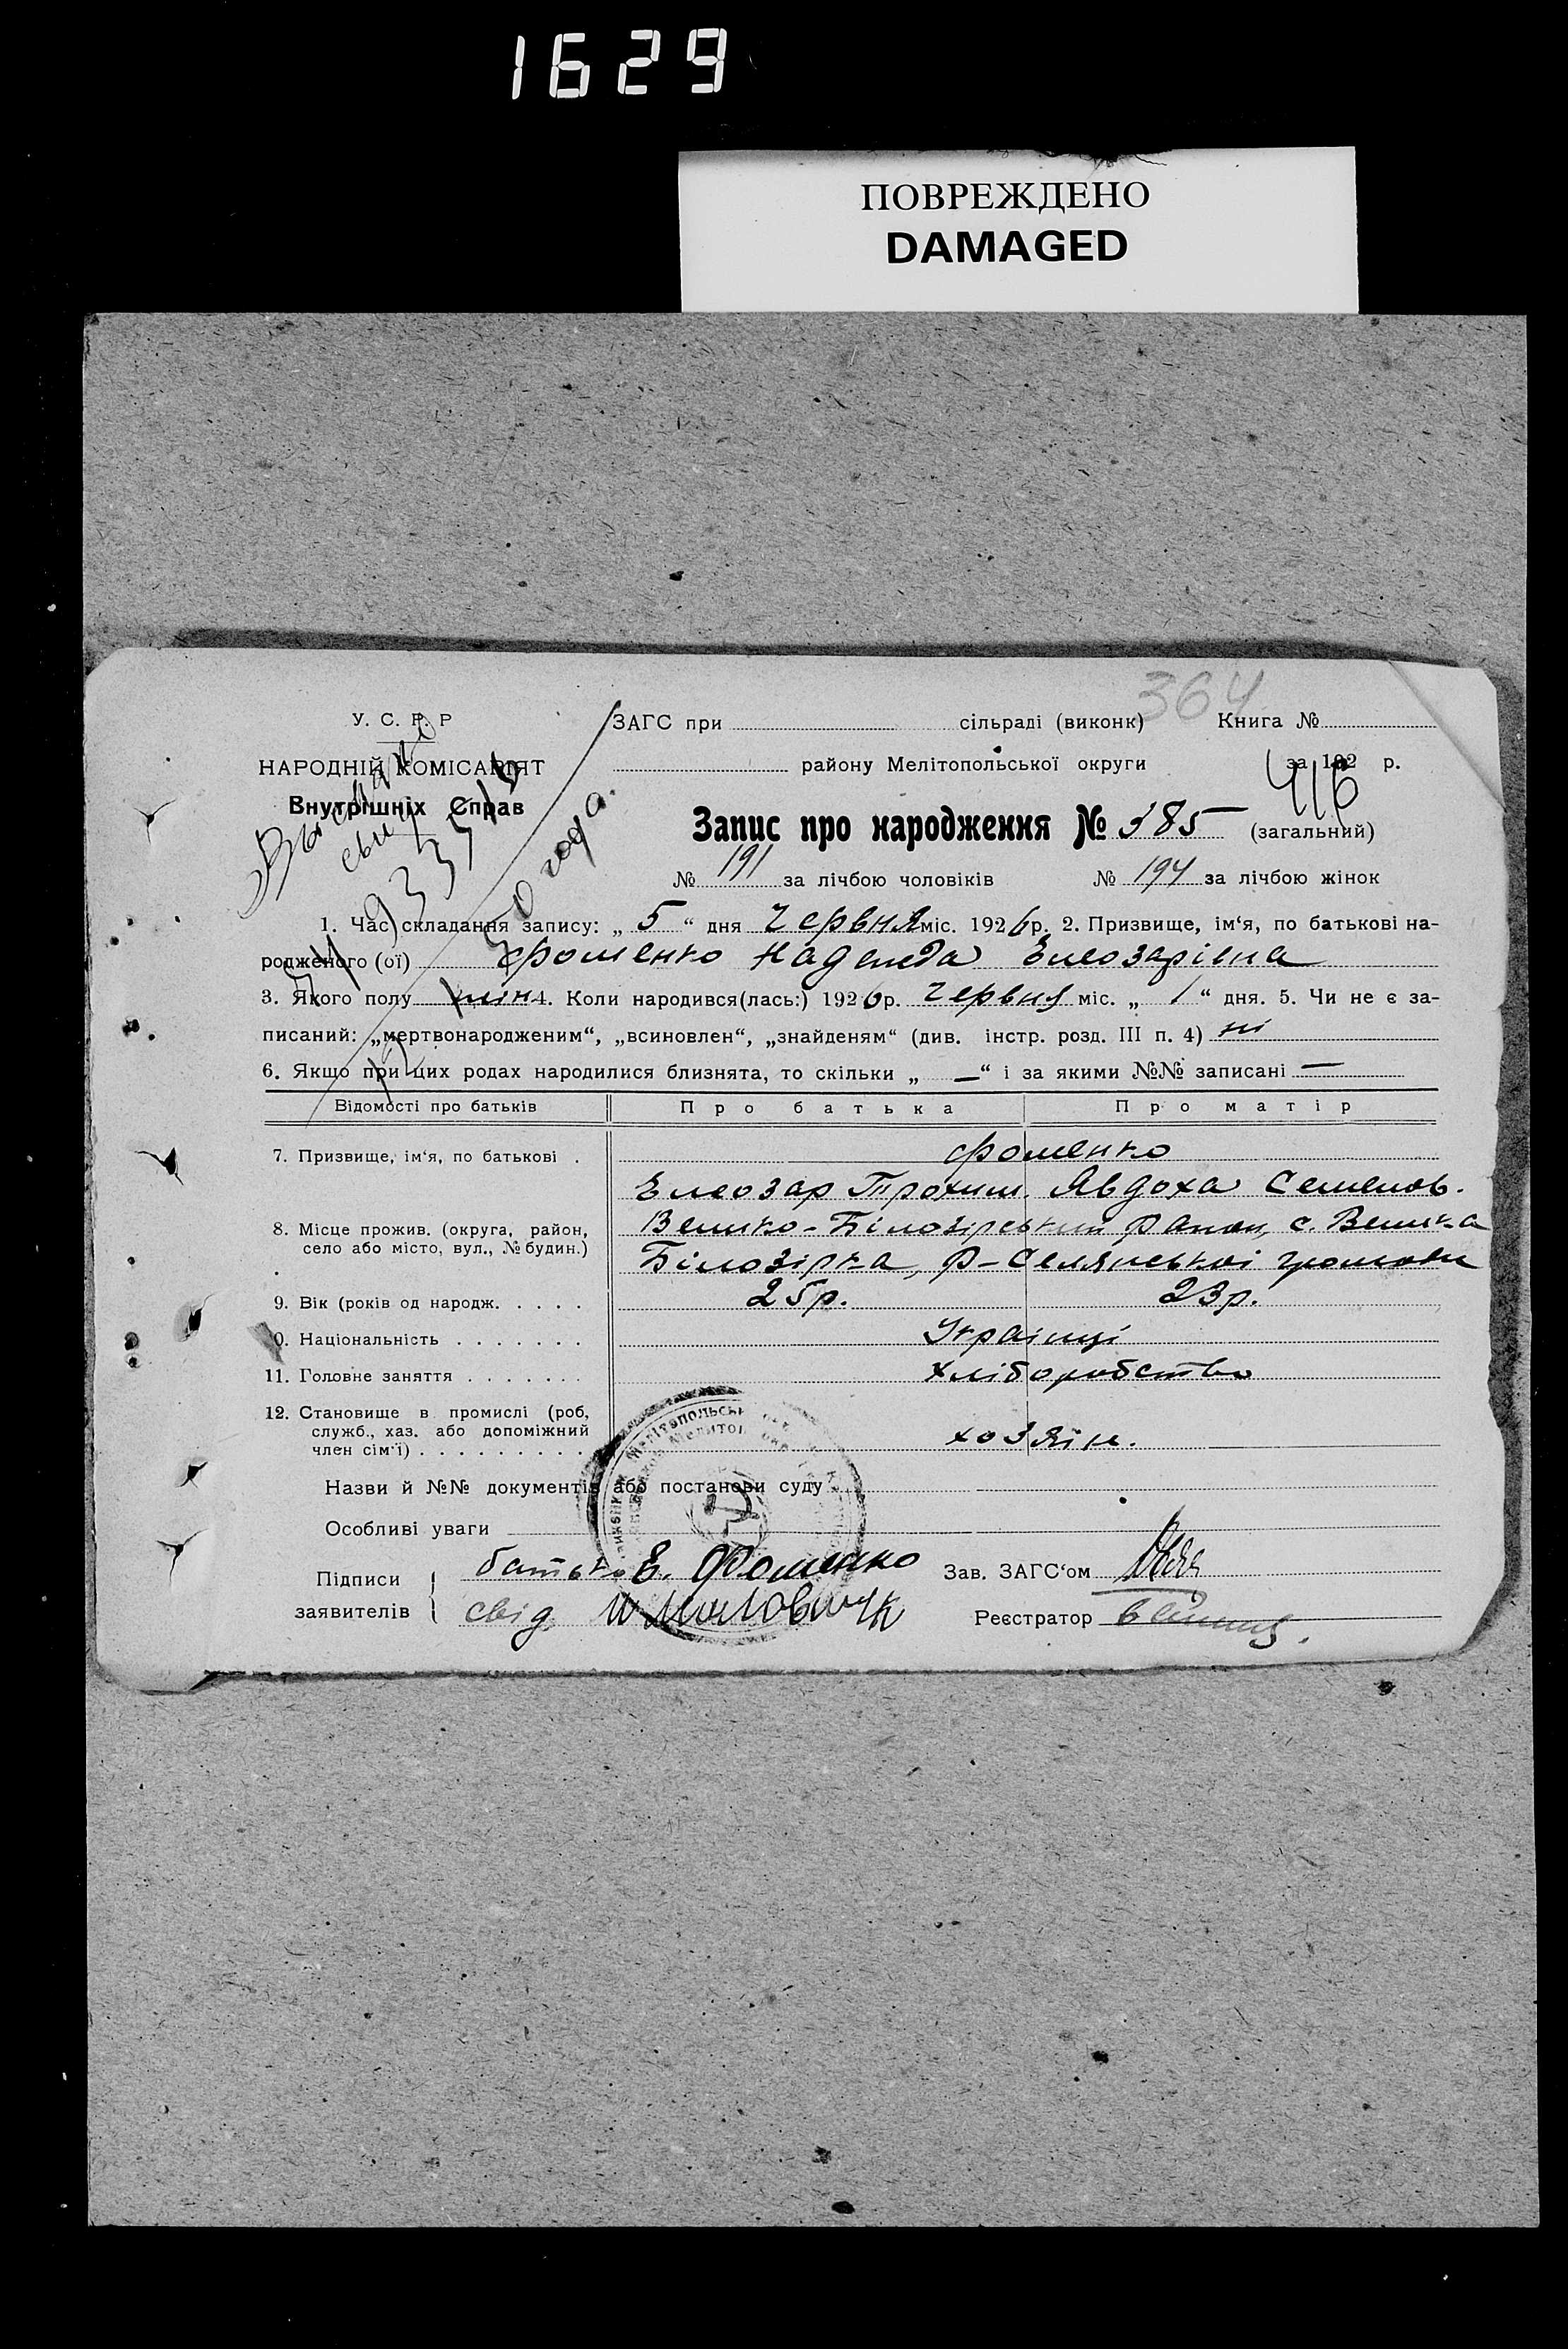 1629
ПОВРЕЖДЕНО
DAMAGED
364
У. С. Р. Р
НАРОДНІЙ КОМІСАРІЯТ
Внутрішніх Справ
ЗАГС при сільраді (виконк) Книга №
району Мелітопольської округи за 192 р.
416
Запис про народження № 385 (загальний)
№ 191 за лічбою чоловіків № 194 за лічбою жінок
года.
1. Час складання запису: „ 5 “ дня Червня міс. 1926 р. 2. Призвище, ім‘я, по батькові на-
родженого (ої) Фоменко Надежда Елеозарівна
3. Якого полу жін 4. Коли народився(лась:) 1926 р. Червня міс. „ 1 “ дня. 5. Чи не є за-
писаний: „мертвонародженим“, „всиновлен“, „знайденям“ (див. інстр. розд. III п. 4) ні
6. Якщо при цих родах народилися близнята, то скільки „ — “ і за якими №№ записані —
Відомості про батьків Про батька Про матір
7. Призвище, ім‘я, по батькові . Фоменко
Елеозар Трохим. Явдоха Семенов.
8. Місце прожив. (округа, район, Велико-Білозірський район, с. Велика
село або місто, вул., № будин.) Білозірка, Р-Селянської громади
9. Вік (років од народж. . . . . 25р. 23р.
0. Національність . . . . . . . Українці
11. Головне заняття . . . . . . . хліборобство
12. Становище в промислі (роб,
служб., хаз. або допоміжний
член сім‘ї) . . . . . . . . . хозяїн.
Назви й №№ документів або постанови суду
Особливі уваги
Підписи батько Е. Фоменко Зав. ЗАГС‘ом
заявителів свід. Реєстратор